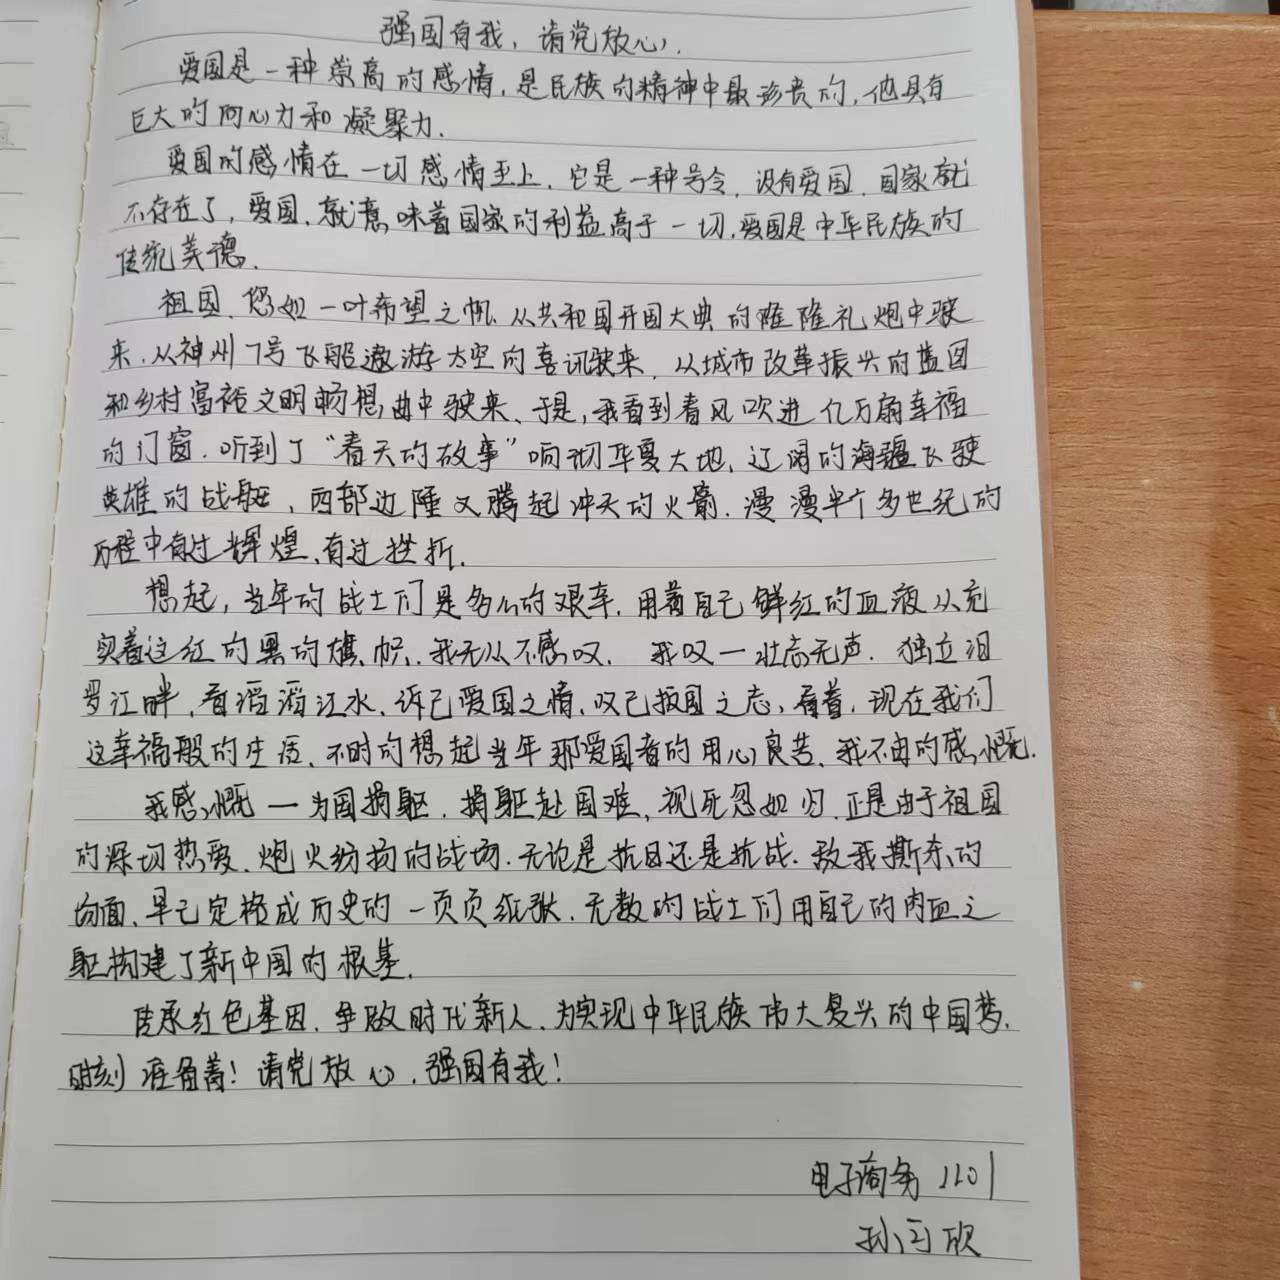 强国有我，请党放心，
爱国是一种崇高的感情，是民族的精神中最珍贵的，他具有
巨大的向心力和凝聚力．
爱国的感情在一切感情至上，它是一种号令，没有爱国，国家就
不存在了，爱国，就意味着国家的利益高于一切，爱国是中华民族的
传统美德．
祖国，您如一叶希望之帆，从共和国开国大典的隆隆礼炮中驶
来，从神州7号飞船遨游太空的喜讯驶来，从城市改革振兴的蓝图
和乡村富裕文明畅想曲中驶来、于是，我看到春风吹进亿万扇幸福
的门窗．听到了“春天的故事”响彻华夏大地，辽阔的海疆飞驶
英雄的战艇，西部边陲又腾起冲天的火箭．漫漫半个多世纪的
历程中有过辉煌、有过挫折．
想起，当年的战士们是多么的艰辛，用着自己鲜红的血液从充
实着这红的黑的旗帜，我无从不感叹． 我叹一壮志无声．独立汨
罗江畔，看滔滔江水，诉己爱国之情，叹己报国之志，看着，现在我们
这幸福般的生活，不时的想起当年那爱国者的用心良苦，我不由的感慨．
我感慨一为国捐躯，捐躯赴国难，视死忽如归，正是由于祖国
的深切热爱，炮火纷扬的战场．无论是抗日还是抗战．敌我撕杀的
场面，早已定格成历史的一页页纸张．无数的战士们用自己的肉血之
躯构建了新中国的根基．
传承红色基因，争做时代新人，为实现中华民族伟大复兴的中国梦，
时刻准备着！请党放心，强国有我！
电子商务 1101
孙欣